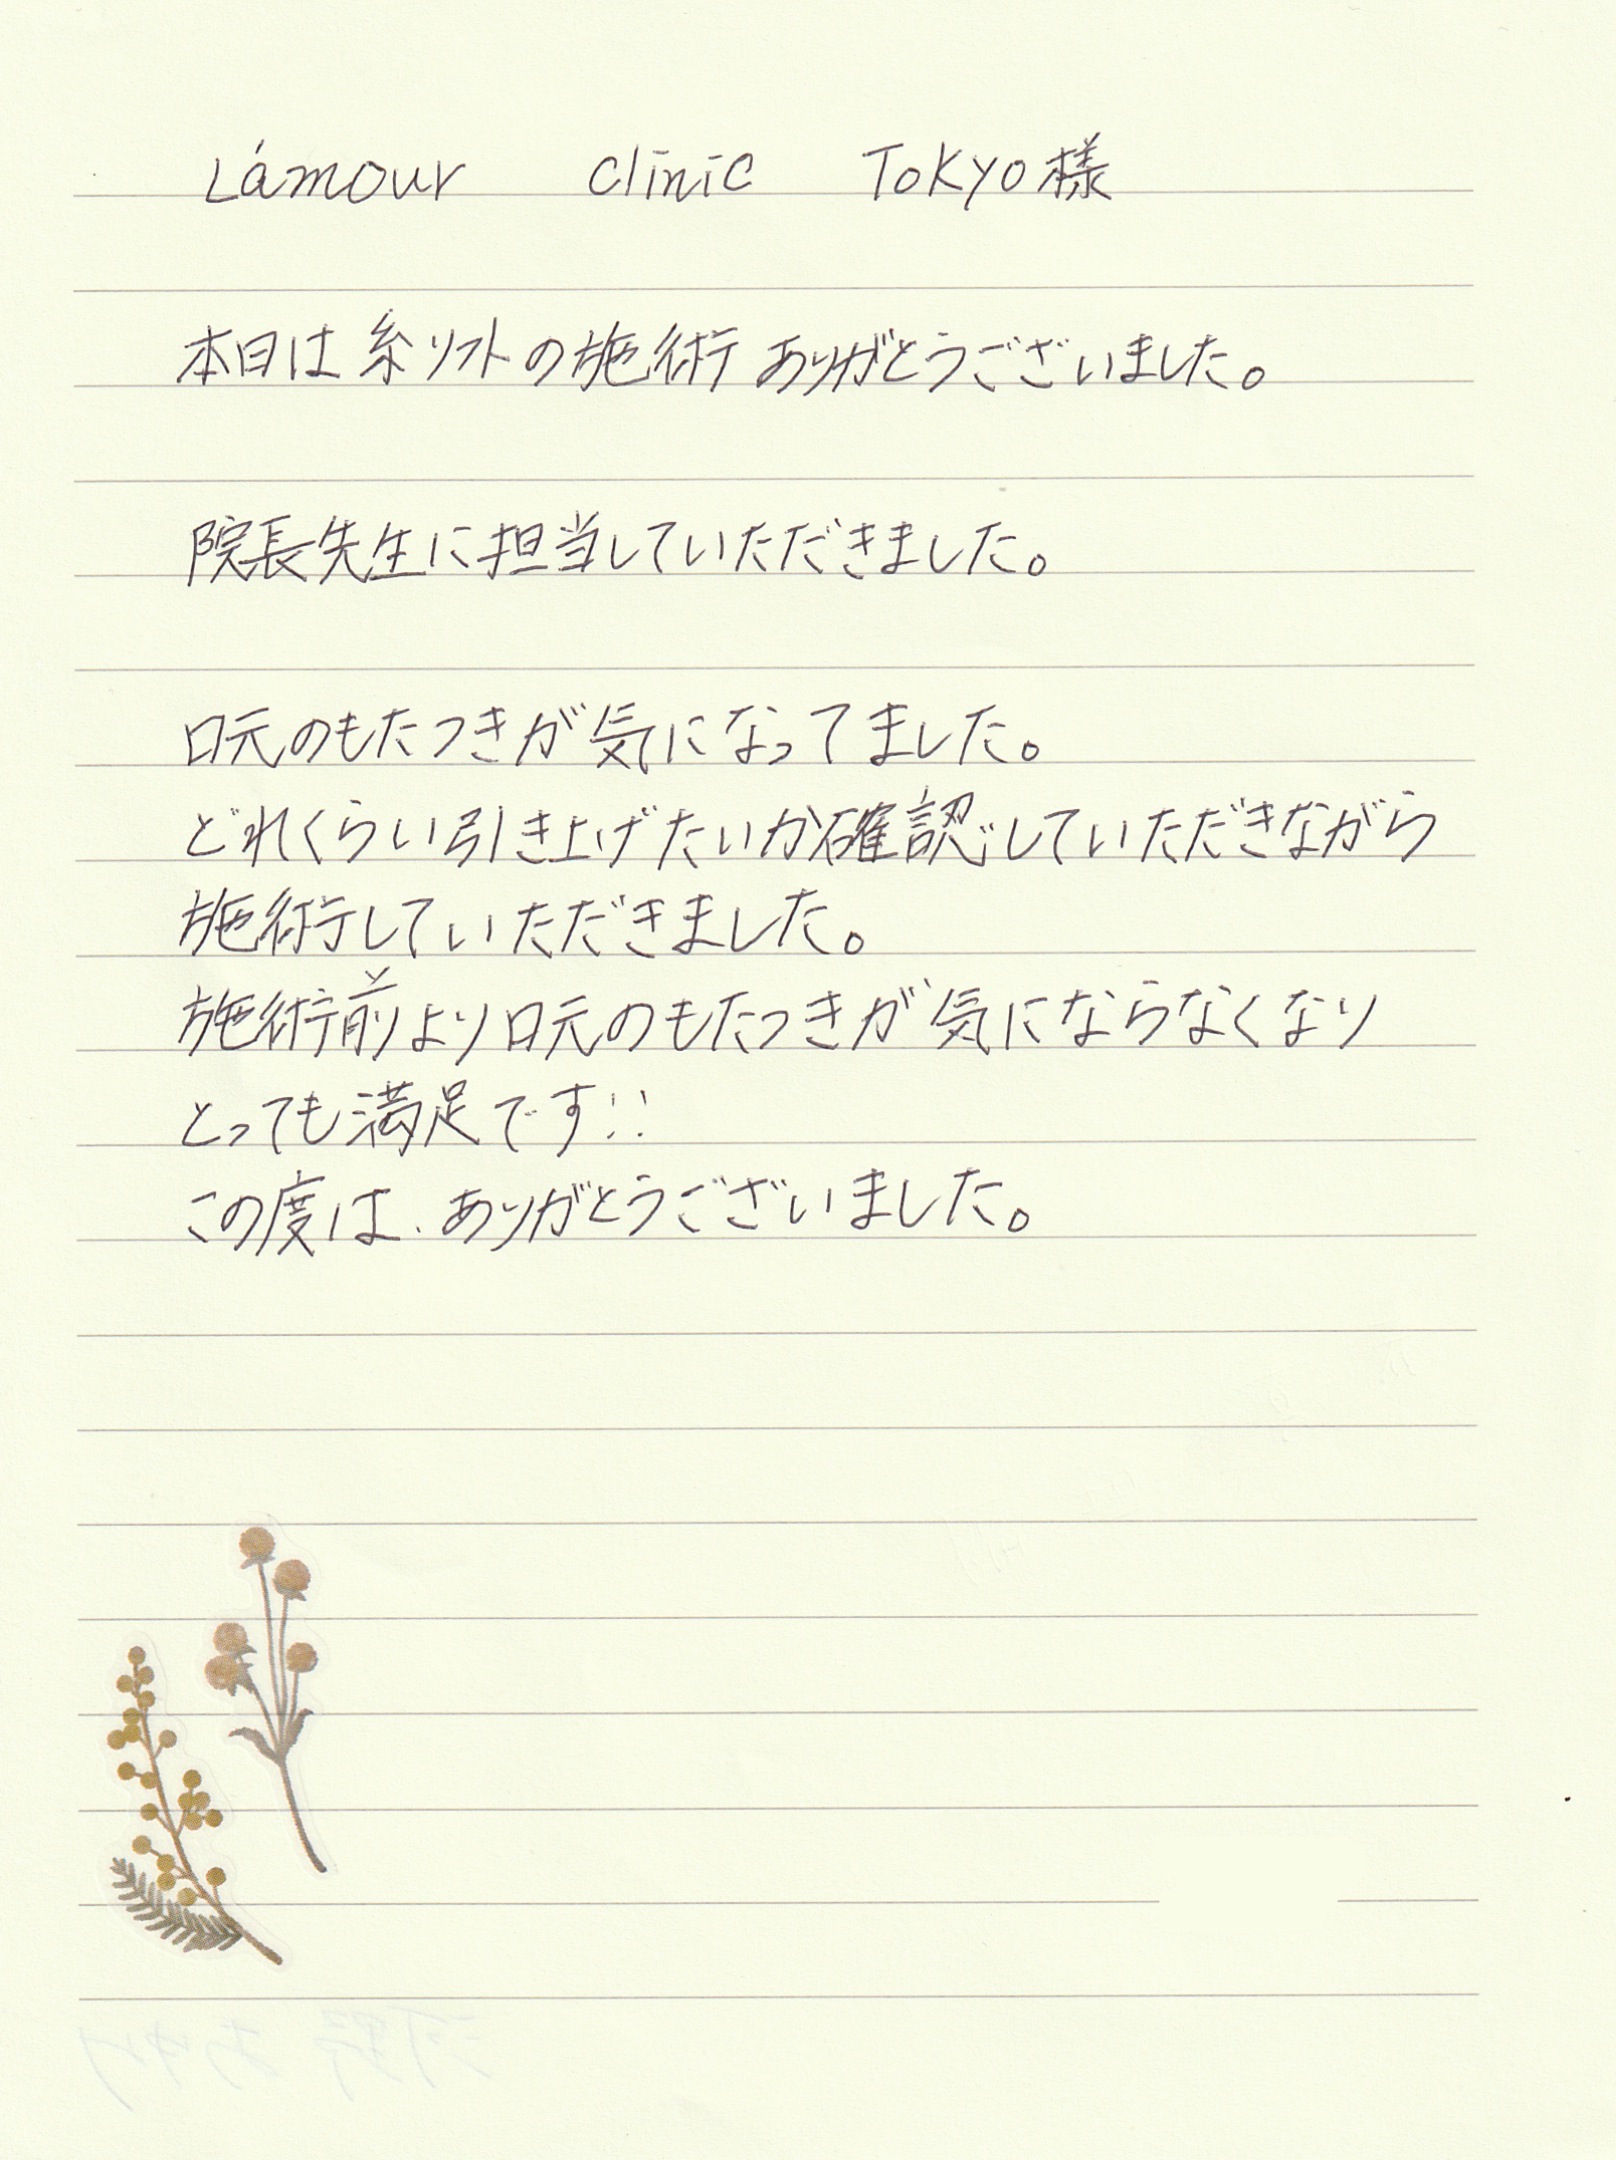 Lámour Clinic Tokyo様
本日は糸リフトの施術ありがとうございました。
院長先生に担当していただきました。
口元のもたつきが気になってました。
どれくらい引き上げたいか確認していただきながら
施術していただきました。
施術前より口元のもたつきが気にならなくなり
とっても満足です!!
この度は、ありがとうございました。